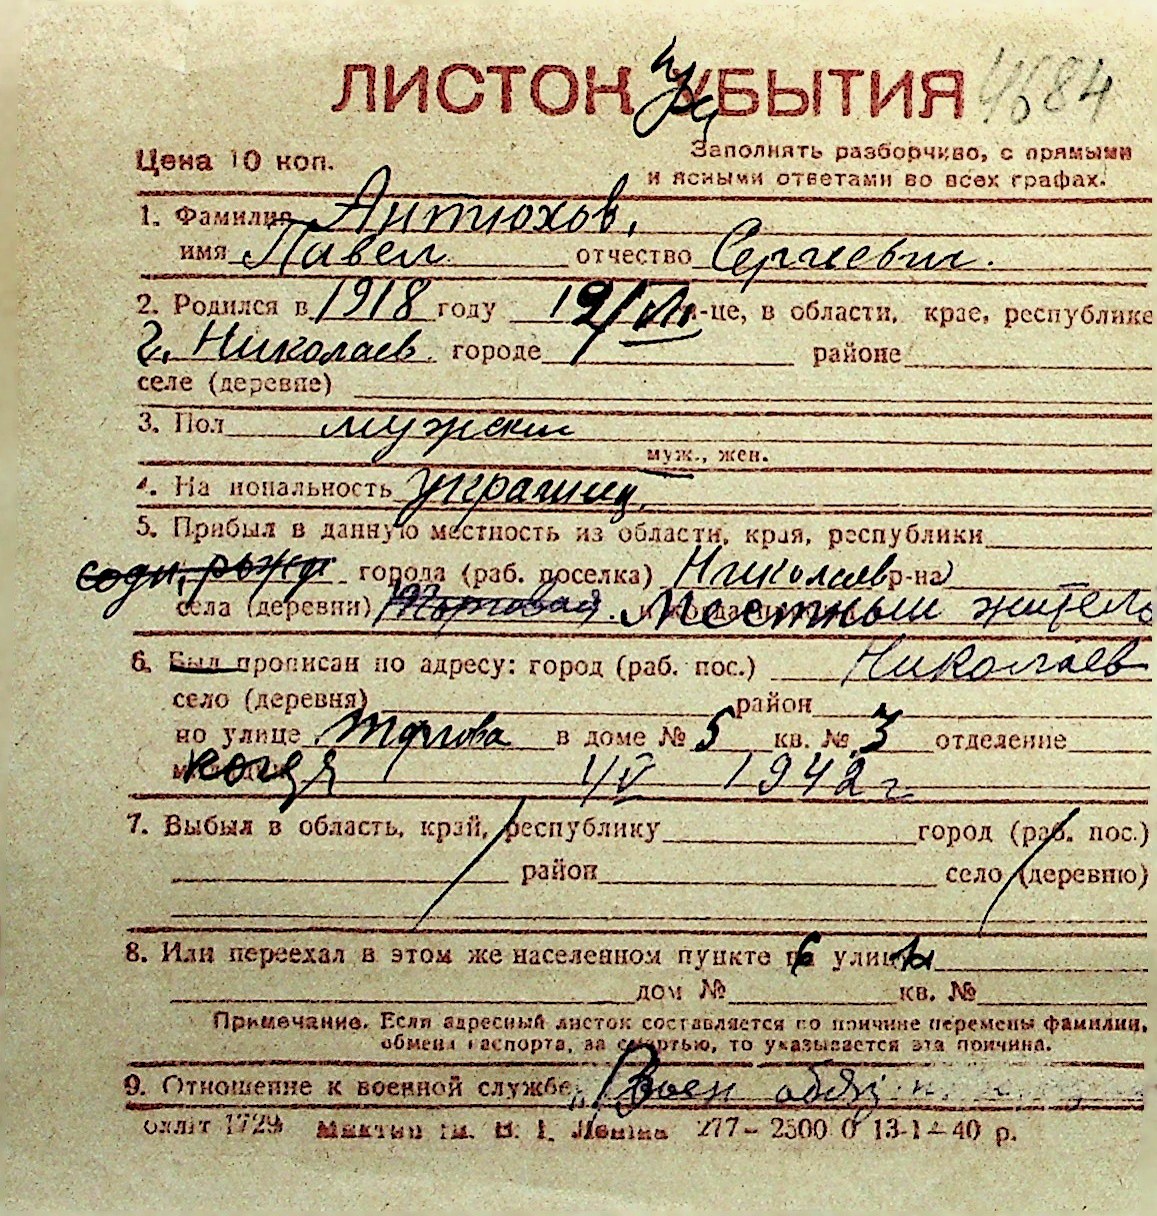 ЛИСТОК УБЫТИЯ 4684
Цена 10 коп.
Заполнять разборчиво, с прямыми
и ясными ответами во всех графах.
1. Фамилия Антюхов,
имя Павел отчество Сергиевич.
2. Родился в 1918 году 19/VII м-це, в области, крае, республике
г. Николаев. городе районе
селе (деревне)
3. Пол мужский
муж., жен.
4. На иональность украинец.
5. Прибыл в данную местность из области, края, республики
города (раб. поселка) Николаев р-на
села (деревни) Торговая. Местный житель
6. Был прописан по адресу: город (раб. пос.) Николаев
село (деревня) район
по улице Торгова в доме № 5 кв. № 3 отделение
когда 1/V 1942 г.
7. Выбыл в область, край, республику город (раб. пос.)
район село (деревню)
8. Или переехал в этом же населенном пункте с улицы
дом № кв. №
Примечание. Если адресный листок составляется по причине перемены фамилии,
обмена паспорта, за смертью, то указывается эта причина.
9. Отношение к военной службе Воен обяз
оллiт 1729 iм. В. I. Ленiна 277–2500 0 13-1 –40 р.